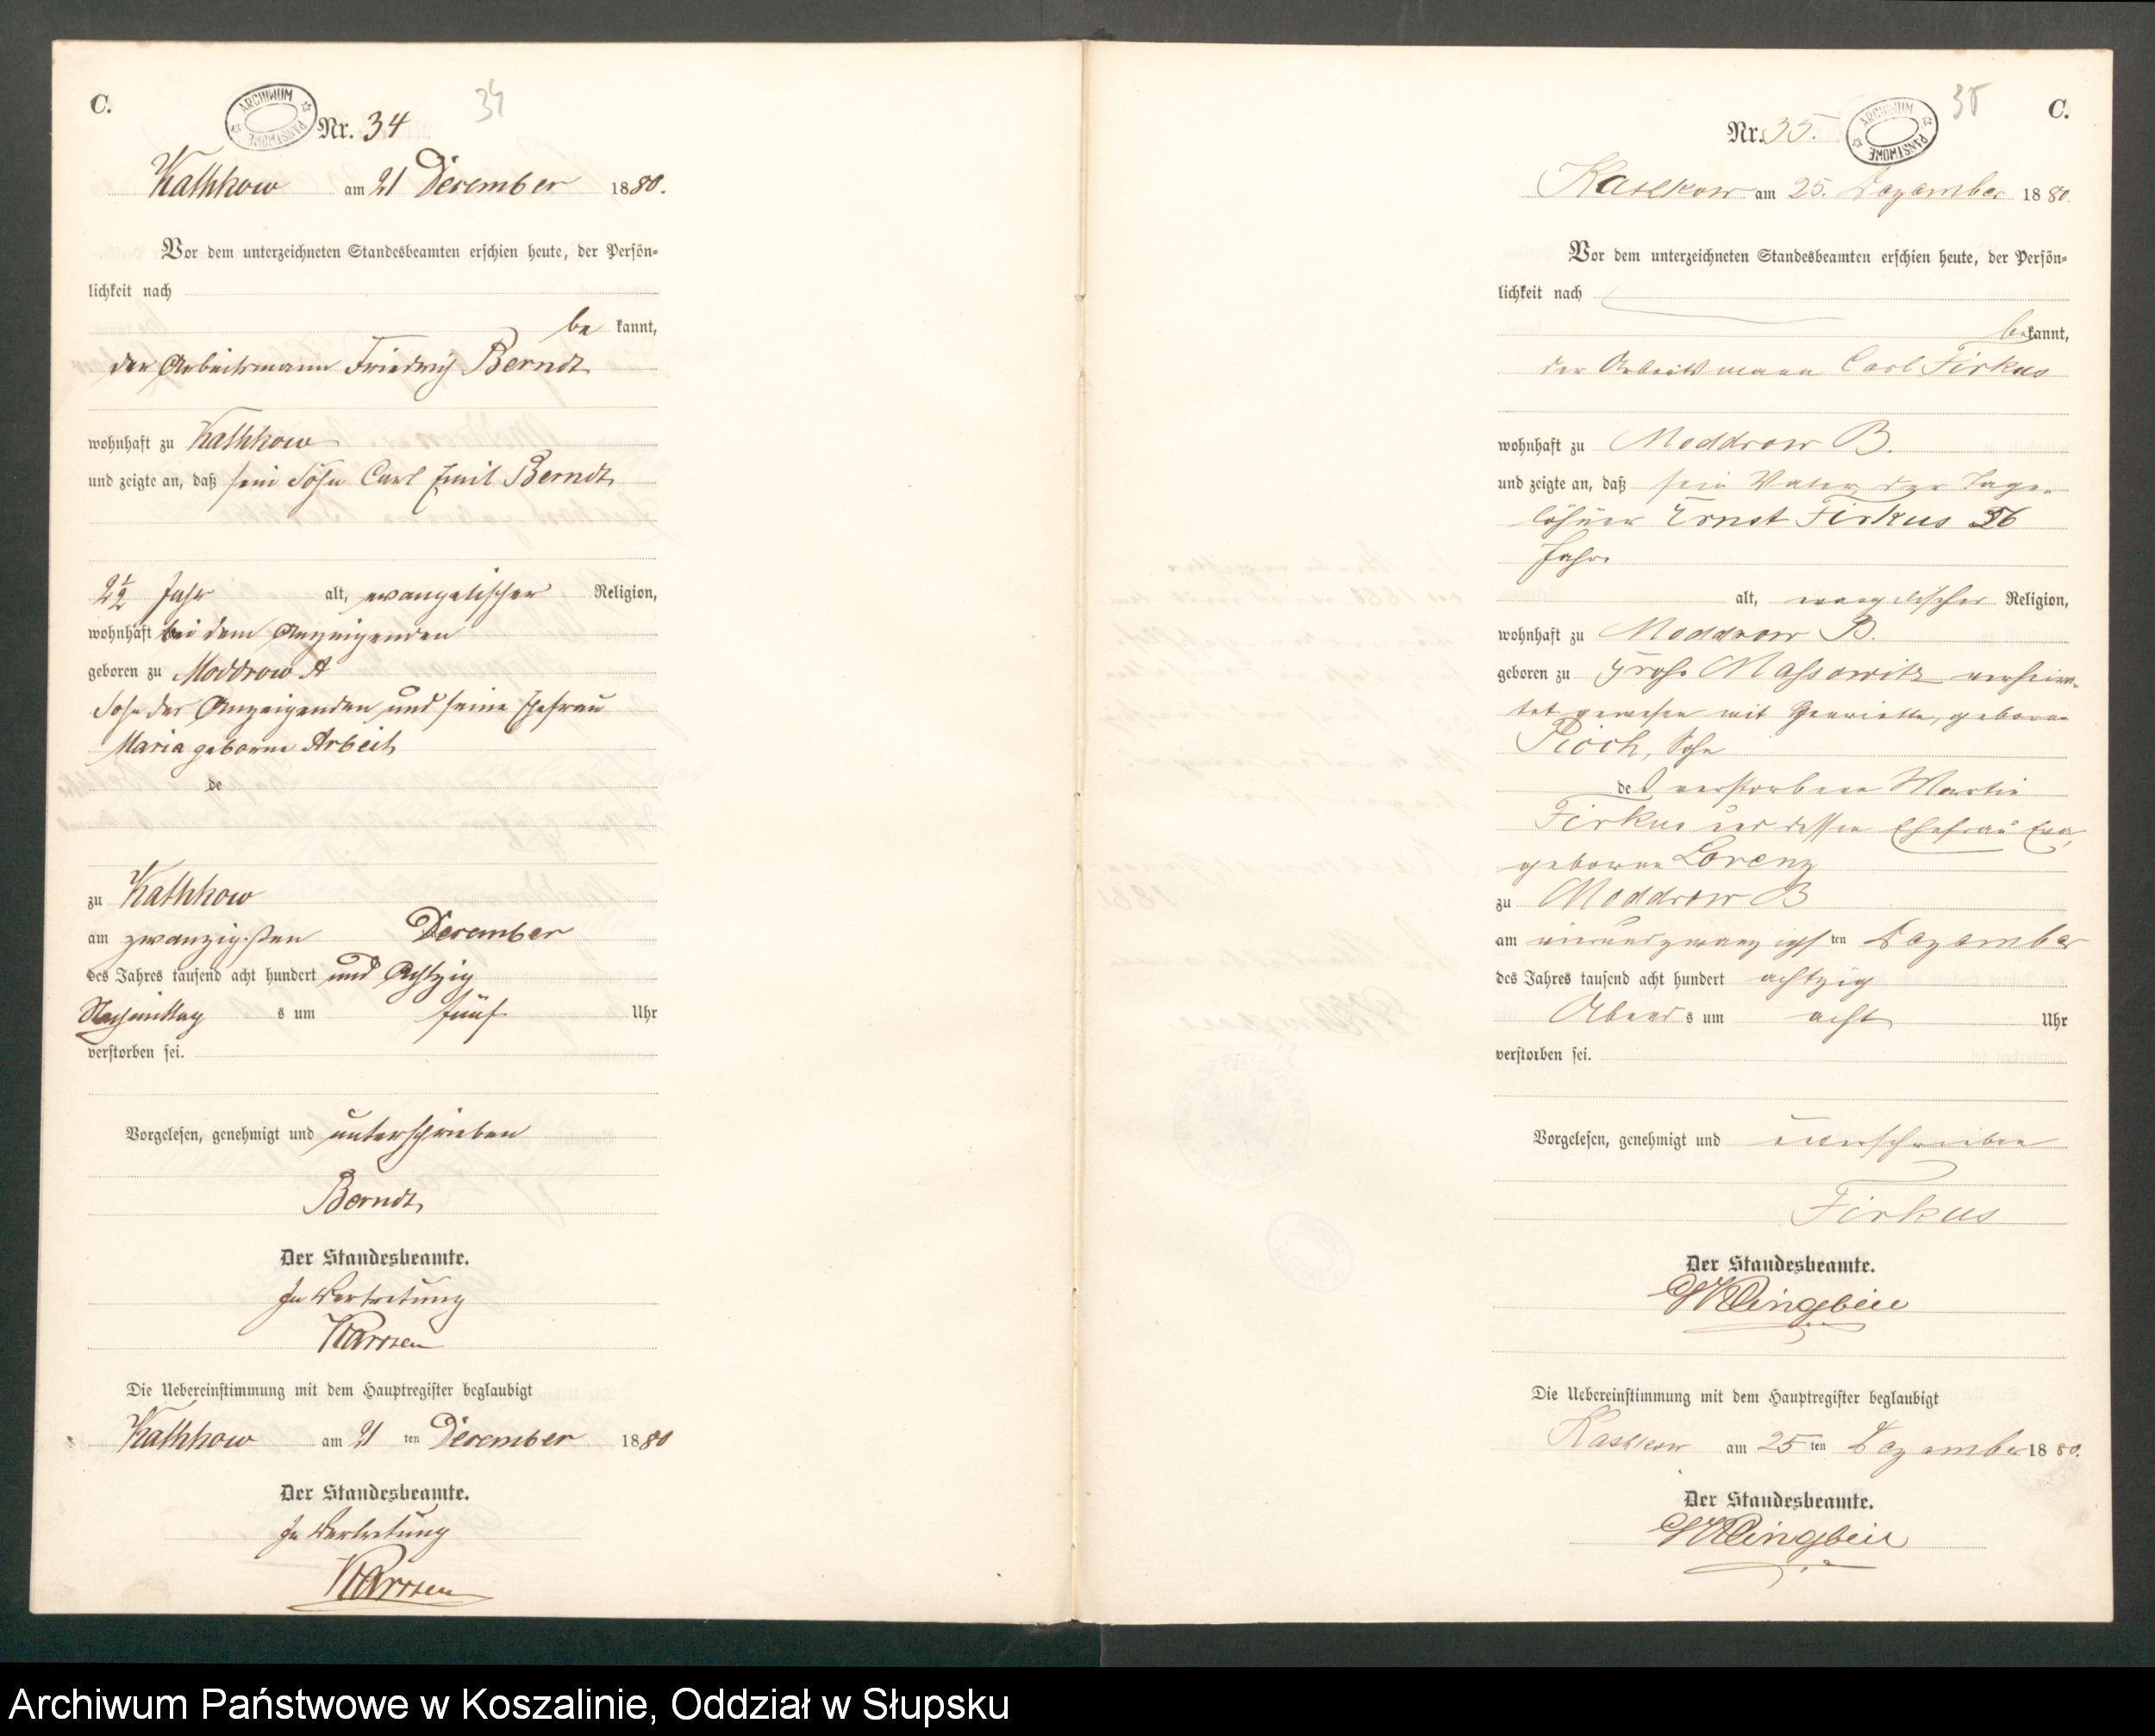 C.
ARCHIWUM PAŃSTWOWE
34
Nr. 34
Kathkow am 21 December 1880.
Vor dem unterzeichneten Standesbeamten erschien heute, der Persön-
lichkeit nach
be kannt,
der Arbeitsmann Friedrich Berndt
wohnhaft zu Kathkow
und zeigte an, daß sein Sohn Carl Emil Berndt
2½ Jahr alt, evangelischer Religion,
wohnhaft bei dem Anzeigenden
geboren zu Moddrow A
Sohn des Anzeigenden und seine Ehefrau
Maria geborne Arbeit
de
zu Kathkow
am zwanzigsten December
des Jahres tausend acht hundert und Achtzig
Nachmittag s um fünf Uhr
verstorben sei.
Vorgelesen, genehmigt und unterschrieben
Berndt
Der Standesbeamte.
In Vertretung
Die Uebereinstimmung mit dem Hauptregister beglaubigt
Kathkow am 21 ten December 1880
Der Standesbeamte.
In Vertretung
35
C.
Nr. 35.
ARCHIWUM PAŃSTWOWE
Kathkow am 25. Dezember 1880.
Vor dem unterzeichneten Standesbeamten erschien heute, der Persön-
lichkeit nach
bekannt,
der Arbeitsmann Carl Firkus
wohnhaft zu Moddrow B.
und zeigte an, daß sein Vater, der Tage-
löhner Ernst Firkus 56
Jahr
alt, evangelischer Religion,
wohnhaft zu Moddrow B.
geboren zu Groß Massowitz verheira-
tet gewesen mit Henriette, geborne
Pioch, Sohn
des verstorbenen Martin
Firkus und dessen Ehefrau Eva,
geborne Lorenz
zu Moddrow B
am vierundzwanzigsten Dezember
des Jahres tausend acht hundert achtzig
Abends um acht Uhr
verstorben sei.
Vorgelesen, genehmigt und unterschrieben
Firkus
Der Standesbeamte.
Klingbeil
Die Uebereinstimmung mit dem Hauptregister beglaubigt
Kathkow am 25 ten Dezember 1880.
Der Standesbeamte.
Klingbeil
Archiwum Państwowe w Koszalinie, Oddział w Słupsku